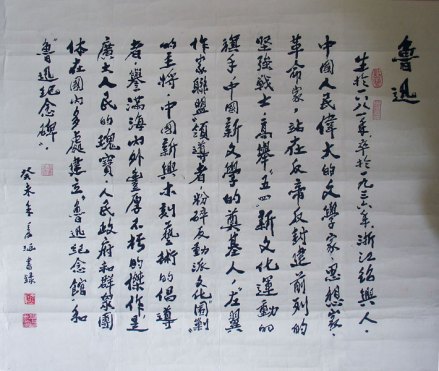 魯迅
生於一八八一年，卒於一九三六年，浙江紹興人。
中國人民偉大的文學家，思想家，
革命家，站在反帝反封建前列的
堅強戰士，高舉“五四”新文化運動的
旗手，中國新文學的奠基人，“左翼
作家聯盟”領導者，粉碎反動派文化圍剿
的主將，中國新興木刻藝術的倡導
者，譽滿海內外豐厚不朽的傑作，是
廣大人民的瑰寶，人民政府和群眾團
体在國內多處建立“魯迅紀念館”和
“魯迅紀念碑”。
癸未年 書錄